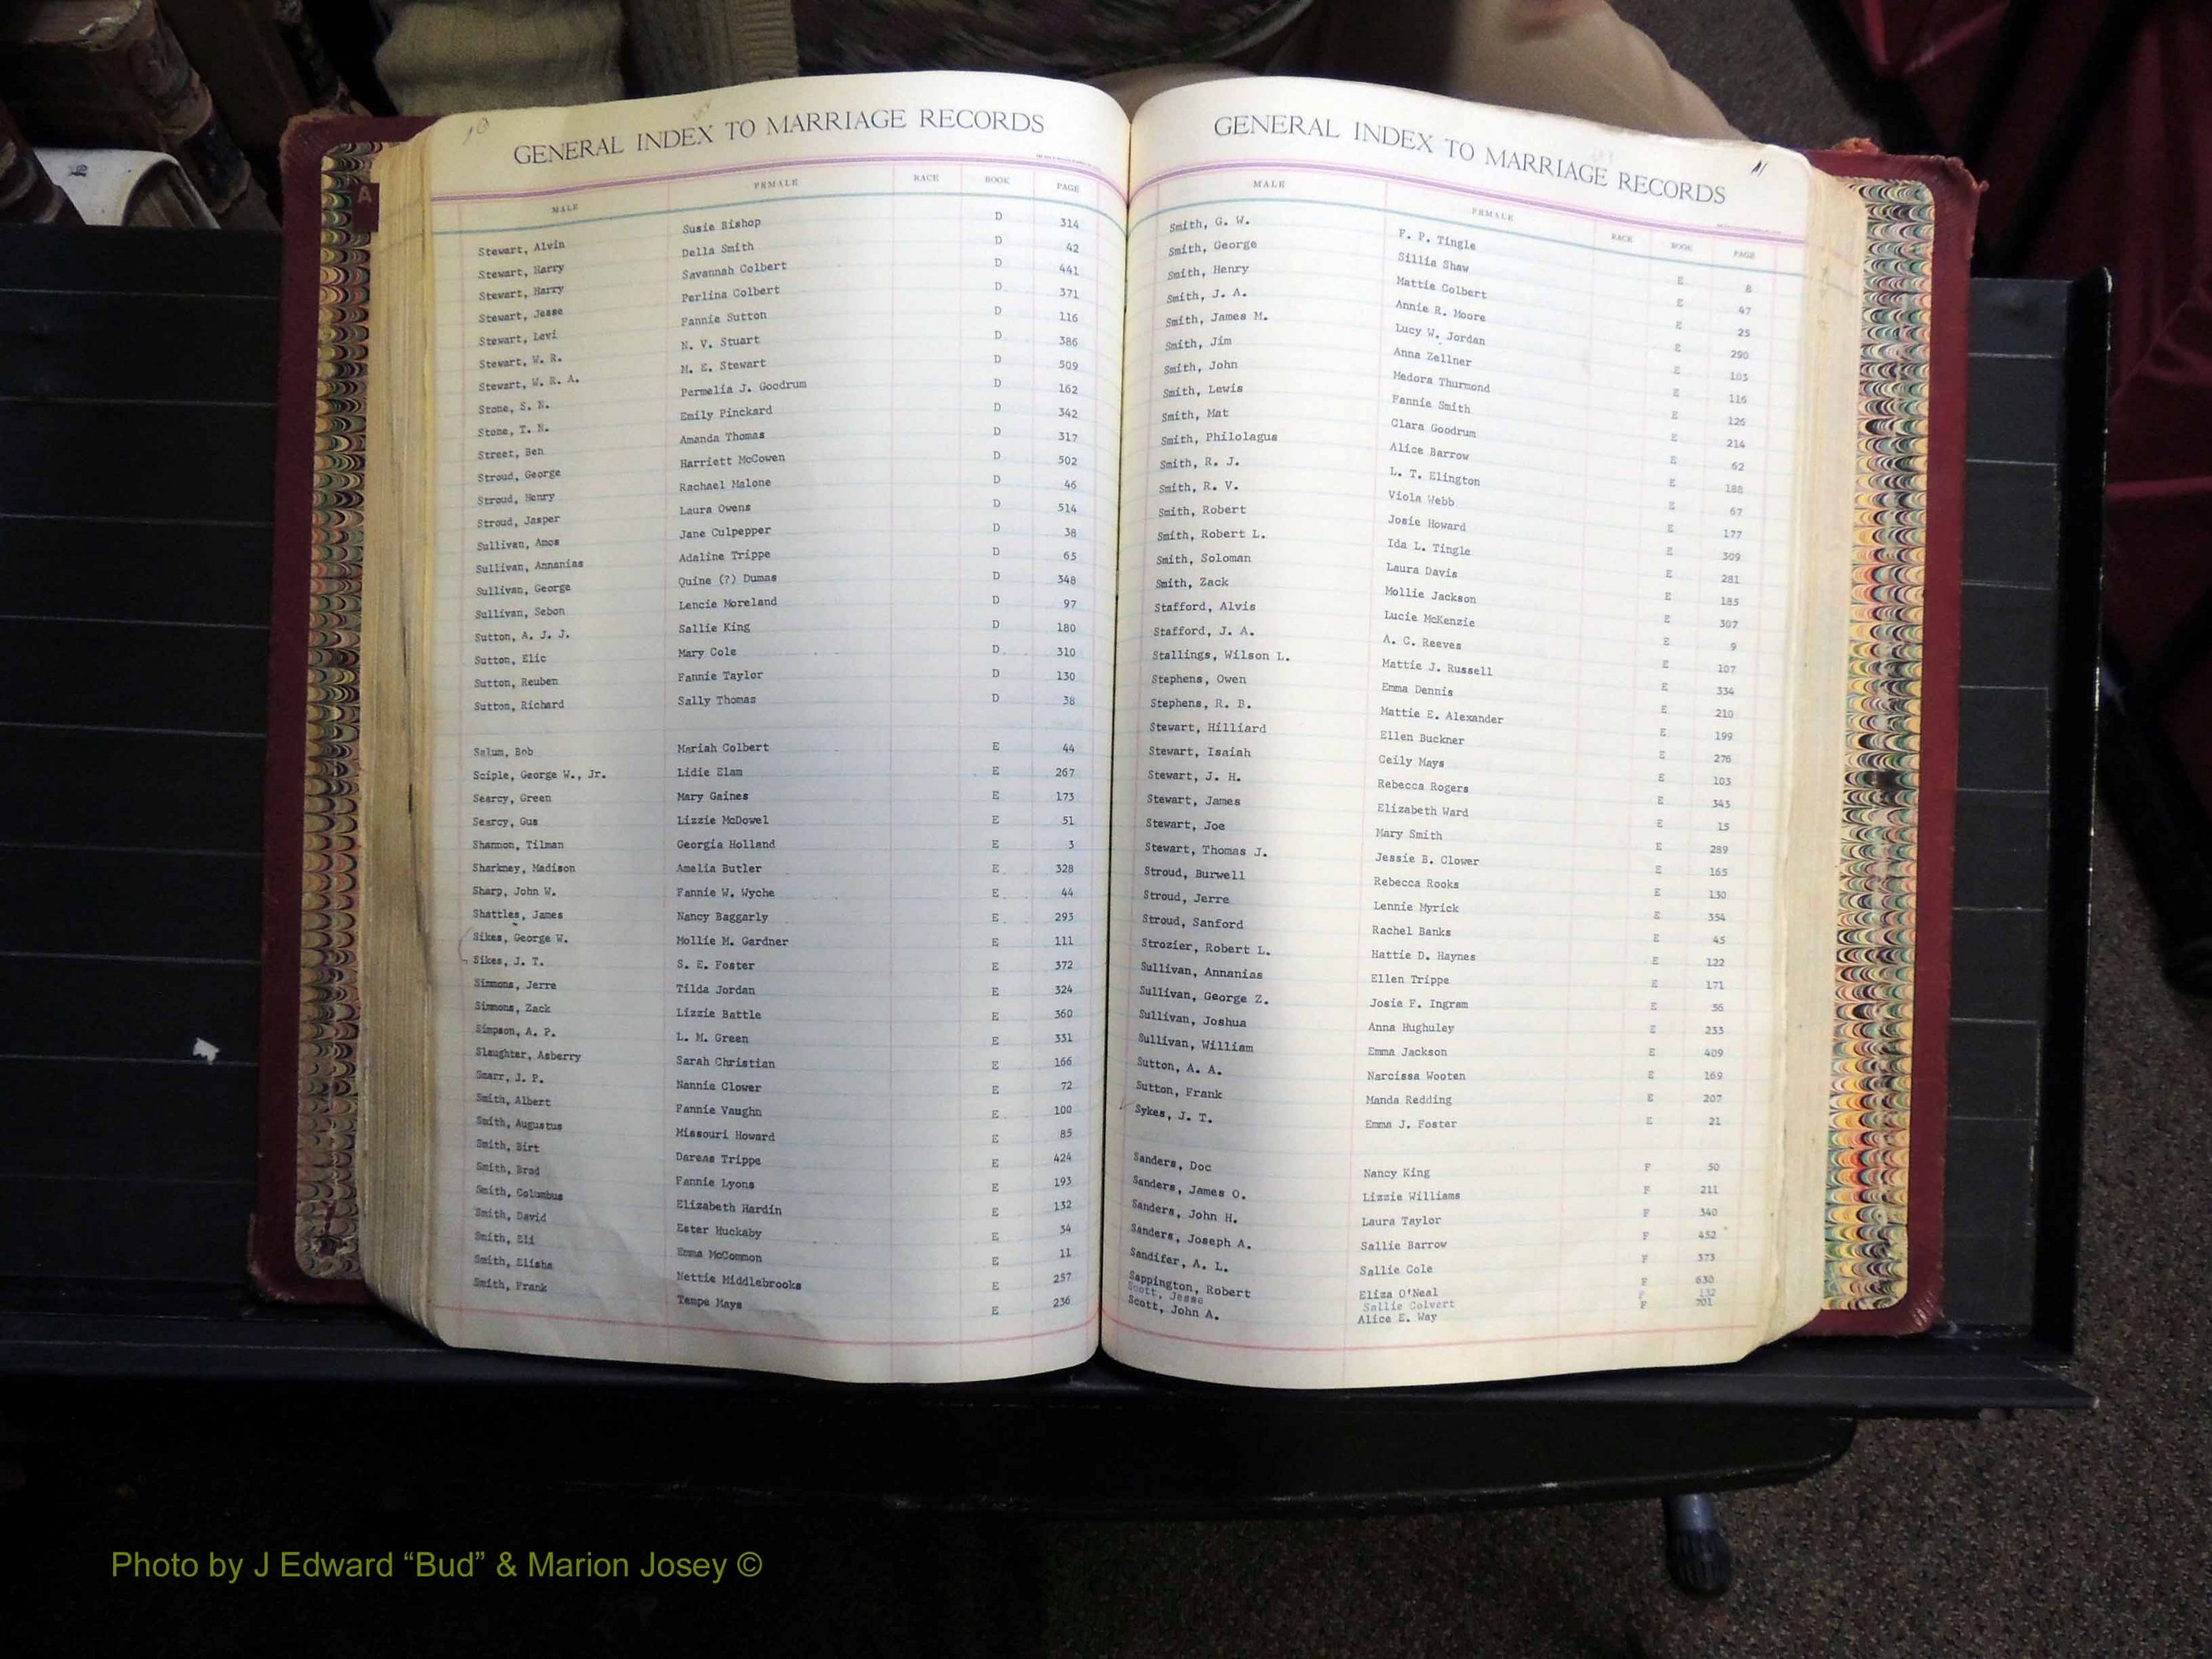 10
GENERAL INDEX TO MARRIAGE RECORDS
MALE FEMALE RACE BOOK PAGE
Stewart, Alvin Susie Bishop D 314
Stewart, Harry Della Smith D 42
Stewart, Harry Savannah Colbert D 441
Stewart, Jesse Perlina Colbert D 371
Stewart, Levi Fannie Sutton D 116
Stewart, W. R. N. V. Stuart D 386
Stewart, W. R. A. M. E. Stewart D 509
Stone, S. N. Permelia J. Goodrum D 162
Stone, T. N. Emily Pinckard D 342
Street, Ben Amanda Thomas D 317
Stroud, George Harriett McCowen D 502
Stroud, Henry Rachael Malone D 46
Stroud, Jasper Laura Owens D 514
Sullivan, Amos Jane Culpepper D 38
Sullivan, Annanias Adaline Trippe D 65
Sullivan, George Quine (?) Dumas D 348
Sullivan, Sebon Lencie Moreland D 97
Sutton, A. J. J. Sallie King D 180
Sutton, Elic Mary Cole D 310
Sutton, Reuben Fannie Taylor D 130
Sutton, Richard Sally Thomas D 38
Salum, Bob Mariah Colbert E 44
Sciple, George W., Jr. Lidie Elam E 267
Searcy, Green Mary Gaines E 173
Searcy, Gus Lizzie McDowel E 51
Shannon, Tilman Georgia Holland E 3
Sharkney, Madison Amelia Butler E 328
Sharp, John W. Fannie W. Wyche E 44
Shattles, James Nancy Baggarly E 293
Sikes, George W. Mollie M. Gardner E 111
Sikes, J. T. S. E. Foster E 372
Simmons, Jerre Tilda Jordan E 324
Simmons, Zack Lizzie Battle E 360
Simpson, A. P. L. M. Green E 331
Slaughter, Asberry Sarah Christian E 166
Smarr, J. P. Nannie Clower E 72
Smith, Albert Fannie Vaughn E 100
Smith, Augustus Missouri Howard E 85
Smith, Birt Dareas Trippe E 424
Smith, Brad Fannie Lyons E 193
Smith, Columbus Elizabeth Hardin E 132
Smith, David Ester Huckaby E 34
Smith, Eli Emma McCommon E 11
Smith, Elisha Nettie Middlebrooks E 257
Smith, Frank Tempe Mays E 236
11
GENERAL INDEX TO MARRIAGE RECORDS
MALE FEMALE RACE BOOK PAGE
Smith, G. W. F. P. Tingle E 8
Smith, George Sillia Shaw E 47
Smith, Henry Mattie Colbert E 25
Smith, J. A. Annie R. Moore E 290
Smith, James M. Lucy W. Jordan E 103
Smith, Jim Anna Zellner E 116
Smith, John Medora Thurmond E 126
Smith, Lewis Fannie Smith E 214
Smith, Mat Clara Goodrum E 62
Smith, Philolagus Alice Barrow E 188
Smith, R. J. L. T. Elington E 67
Smith, R. V. Viola Webb E 177
Smith, Robert Josie Howard E 309
Smith, Robert L. Ida L. Tingle E 281
Smith, Soloman Laura Davis E 185
Smith, Zack Mollie Jackson E 307
Stafford, Alvis Lucie McKenzie E 9
Stafford, J. A. A. C. Reeves E 107
Stallings, Wilson L. Mattie J. Russell E 334
Stephens, Owen Emma Dennis E 210
Stephens, R. B. Mattie E. Alexander E 199
Stewart, Hilliard Ellen Buckner E 276
Stewart, Isaiah Ceily Mays E 103
Stewart, J. H. Rebecca Rogers E 343
Stewart, James Elizabeth Ward E 15
Stewart, Joe Mary Smith E 289
Stewart, Thomas J. Jessie B. Clower E 165
Stroud, Burwell Rebecca Rooks E 130
Stroud, Jerre Lennie Myrick E 354
Stroud, Sanford Rachel Banks E 45
Strozier, Robert L. Hattie D. Haynes E 122
Sullivan, Annanias Ellen Trippe E 171
Sullivan, George Z. Josie F. Ingram E 56
Sullivan, Joshua Anna Hughuley E 233
Sullivan, William Emma Jackson E 409
Sutton, A. A. Narcissa Wooten E 169
Sutton, Frank Manda Redding E 207
Sykes, J. T. Emma J. Foster E 21
Sanders, Doc Nancy King F 50
Sanders, James O. Lizzie Williams F 211
Sanders, John H. Laura Taylor F 340
Sanders, Joseph A. Sallie Barrow F 452
Sandifer, A. L. Sallie Cole F 373
Sappington, Robert Eliza O'Neal F 630
Scott, Jesse Sallie Colvert F 132
Scott, John A. Alice E. Way F 701
A
Photo by J Edward “Bud” & Marion Josey ©